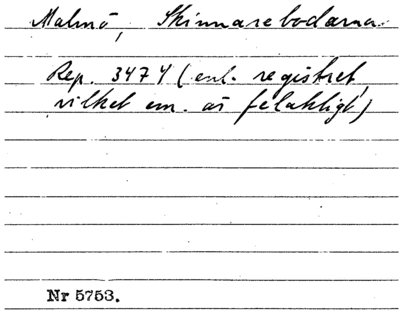 Malmö, Skinnarebodarna.
Rep. 3474 (enl. registret,
vilket em. är felaktigt)
Nr 5753.